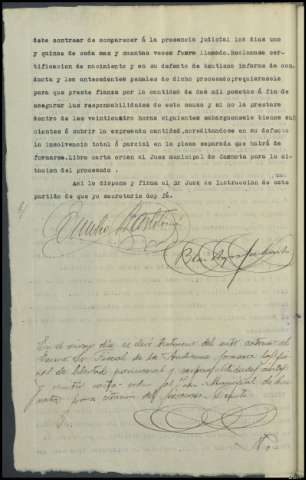 debe contraer de comparecer á la presencia judicial los dias uno
y quince de cada mes y cuantas veces fuere llamado.Reclamese cer-
tificacion de nacimiento y en su defecto de bautismo informe de con-
ducta y los antecedentes penales de dicho procesado;requierasele
para que preste fianza por la cantidad de dos mil pesetas á fin de
asegurar las responsabilidades de esta causa y si no la prestare
dentro de las veinticuatro horas siguientes embarguensele bienes sufi-
cientes á cubrir la expresada cantidad,acreditandose en su defecto
la insolvencia total ó parcial en la pieza separada que habrá de
formarse.Libre carta orden al Juez municipal de para la ci-
tacion del procesado .
Asi lo dispone y firma el Sr Juez de Instruccion de este
partido de que yo secretario doy fé.
En el mismo dia se dió testimonio del auto anterior al
Iltmo Sr Fiscal de la Audiencia
de libertad provisional y responsabilidades
y carta orden al Juez Municipal de
para citacion del procesado